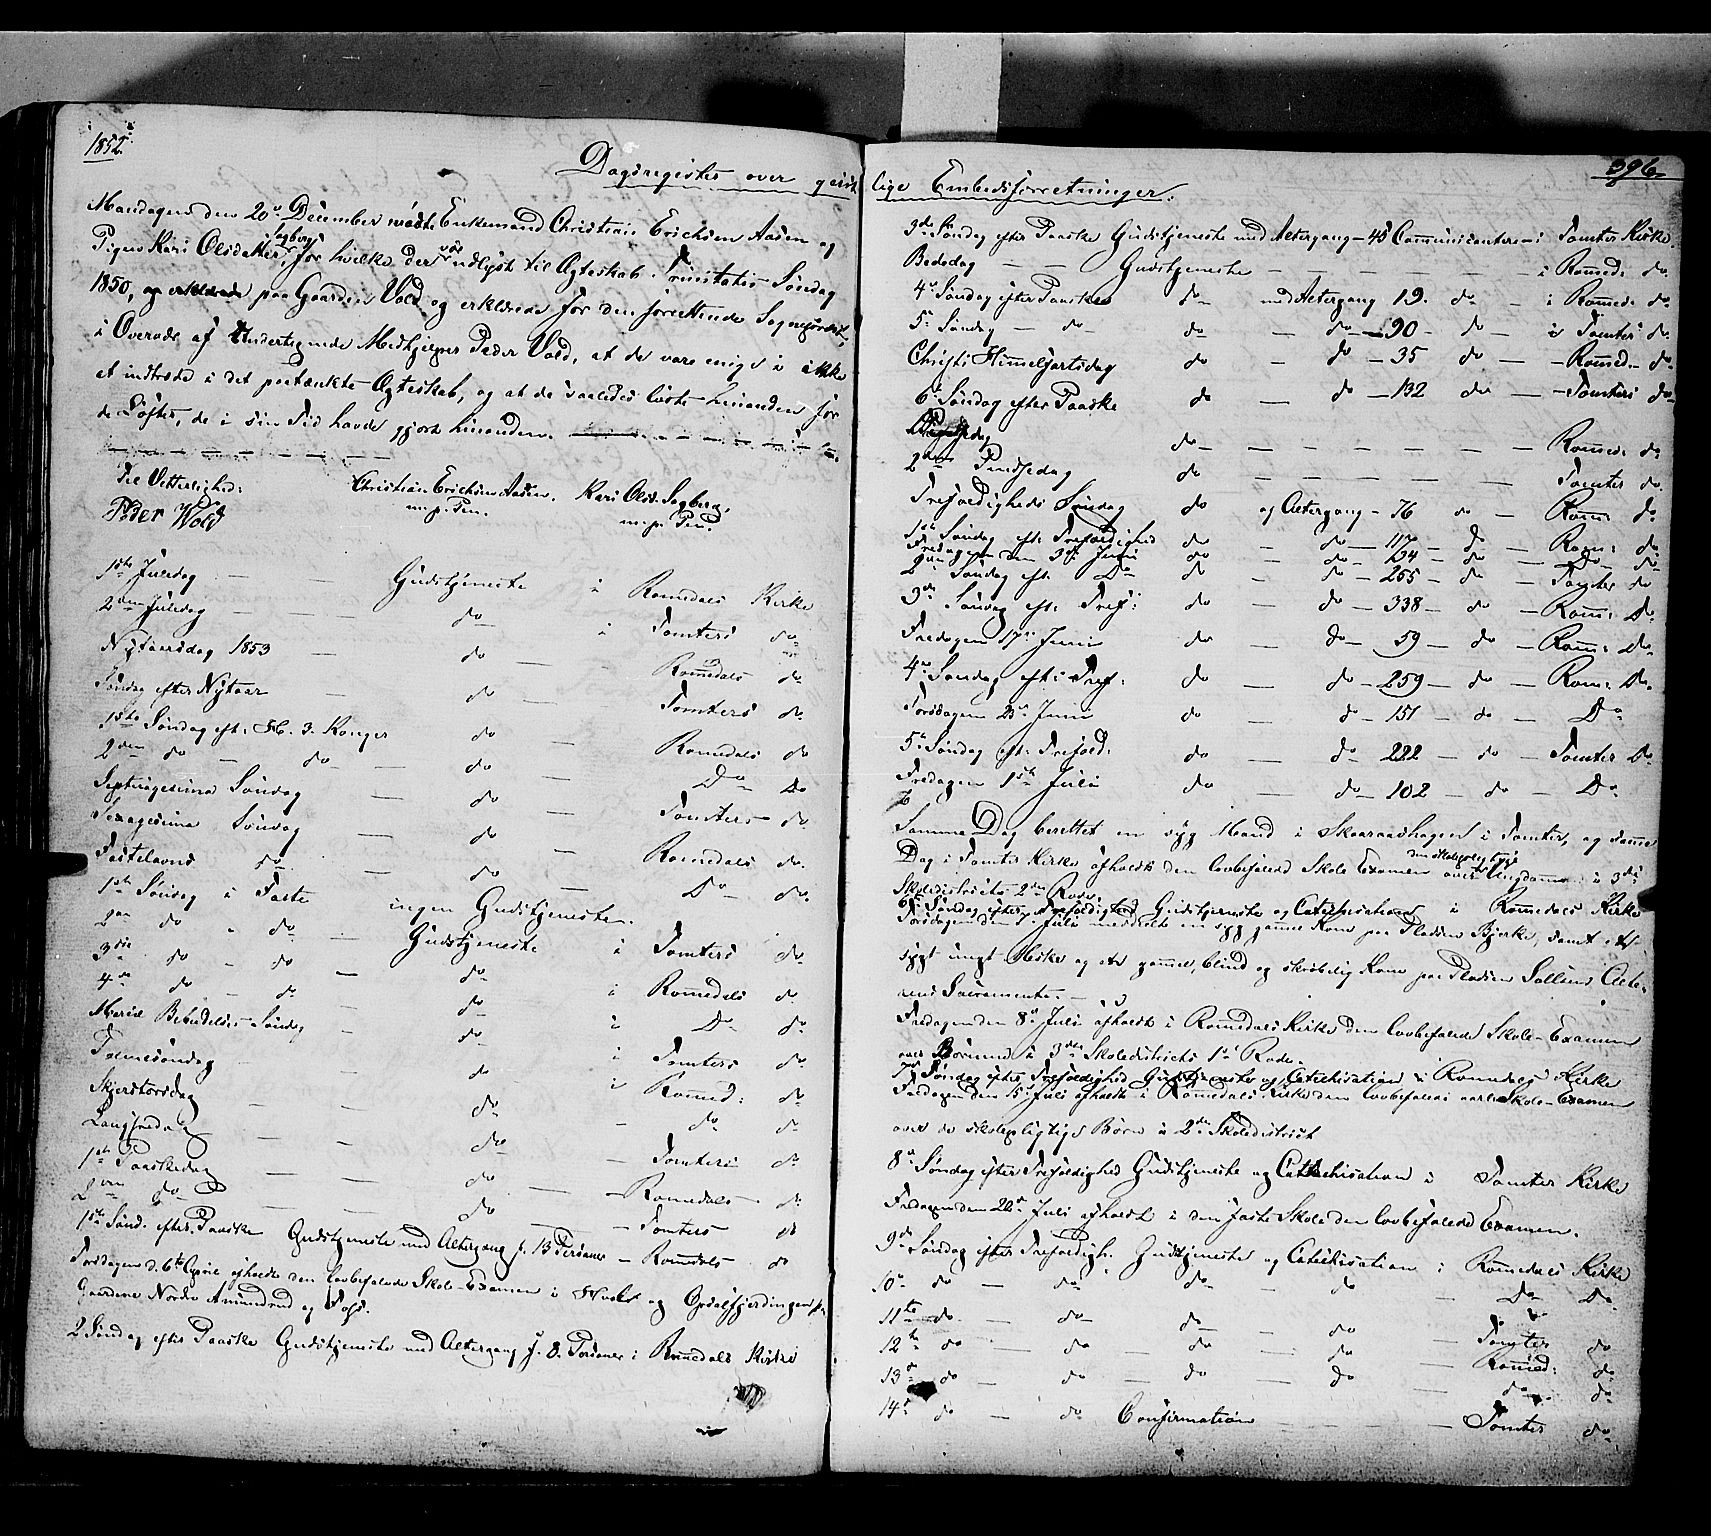 1852.
Dagsregister over geist
Mandagen den 20de December mødte Enkemand Christian Erichsen Aasen og
Pigen Kari Olsdatter Sagberg, for hvilke der var udlyst til Ægteskab Trinitatis Søndag
1850, og erklærede paa Gaarden Vold og erklærede for den forrettende Sognepræst,
i Overvær af Undertegnede Medhjelper Peder Vold, at de vare enige i ikke
at indtræde i det paatænkte Ægteskab, og at de saaledes løste hinanden for
de Løfter, de i sin Tid havde gjort hinanden.
Til Vitterlighed: Christian Erichsen Aasen. Kari Olsd. Sagberg.
Peder Wold m. p. Pen. m. p. Pen.
1ste Juledag — Gudstjeneste i Romedals Kirke
2den Juledag — do i Tomters do
Nytaarsdag 1853 — do — Romedals do
Søndag efter Nytaar — do — Tomters do
1ste Søndag eft. H. 3. Konger do — Romedals do
2den do — do — do — Do Do
Septuagesima Søndag — do — Tomters do
Sexagesima Søndag — do — Romedals do
Fastelavns do — do — Do do
1ste Søndag i Faste ingen Gudstjeneste.
2den do " do — Gudstjeneste i Tomters do
3die do — do — do i Romedals do
4de do — do — do i Do do
Mariæ Bebudelses Søndag — do i Tomters do
Palmesøndag — do i Romed: do
Skjertorsdag — do — do do
Langfredag — do — Tomters do
1ste Paaskedag — do — Romedals do
2den do — do — Tomters do
1ste Sønd. efter Paaske Gudstjeneste med Altergang f. 13 Personer — Romedals do
Torsdagen d. 6te April afholdt den lovbefalede Skole-Examen i og Opdalsfjerdingen paa
Gaardene Nordre Aamundrud og
2 Søndag efter Paaske Gudstjeneste med Altergang f. 8 Personer i Romedals Kirke
396.
lige Embedsforretninger.
3die Søndag efter Paaske Gudstjeneste med Altergang — 48 Communicantere — i Tomter Kirke.
Bededag — Gudstjeneste — i Romed: do
4de Søndag efter Paaske do med Altergang 19. do — i Romed: do
5te Søndag — do — do — do — 90 — do — i Tomter do
Christi Himmelfartsdag do — do — 35 do — Romed: do
6te Søndag efter Paaske do — do — 132 do — Tomters do
Pindsedag do — Romed: do
2den Pindsedag do Tomter do
Trefoldigheds Søndag do og Altergang — 76 do — Rom: do
1ste Søndag eft. Trefoldighed do — do — 117 — do — Rom: do
Fredagen den 3die Juni do — do — 134 — do — Do do
2den Søndag eft. Do do — do — 255 — do — Tomter do
3die Søndag eft. Tref: do — do — 338 — do — Rom: Do
Fredagen 17de Juni do — do — 59 — do — Rom: Do
4de Søndag eft. Tref: do — do — 259 — do — Rom: Do
Torsdagen 23de Juni do — do — 151 — do — Do
5te Søndag eft. Trefold: do — do — 222 — do — Tomter Do
Fredagen 1ste Juli do — do — 102 — do — Do
Samme Dag berettet en syg Mand i Skaaraashagen i Tomter, og samme
Dag i Tomter Kirke afholdt den lovbefalede Skole Examen over den skolepligtige Ungdom i 3die
Skoledistricts 2den Rode.
6te Søndag efter Trefoldighed Gudstjeneste og Catechisation i Romedals Kirke
Torsdagen den 7de Juli meddelte en syg gammel Kone paa Pladsen Bjerke, samt et
sygt ungt Mske og en gammel, blind og skrøbelig Kone paa Pladsen Alte-
rens Sacramente. —
Fredagen den 8de Juli afholdt i Romedals Kirke den lovbefalede Skole-Examen
over Børnene i 3die Skoledistricts 1ste Rode.
7de Søndag efter Trefoldighed Gudstjeneste og Catechisation i Romedals Kirke
Fredagen den 15de Juli afholdt i Romedals Kirke den lovbefalede aarlige Skole-Examen
over de skolepligtige Børn i 2det Skoledistrict
8de Søndag efter Trefoldighed Gudstjeneste og Catechisation i Tomter Kirke
Fredagen den 22de Juli afholdt i den faste Skole den lovbefalede Examen.
9de Søndag efter Trefoldigh. Gudstjeneste og Catechisation i Romedals Kirke
10de do — do — do — do — Do Do
11te do — do — do — do — Tomter do
12te do — do — do — do — Romed: do
13de do — do — do — do — do do
14de do — do Confirmation — Tomter do